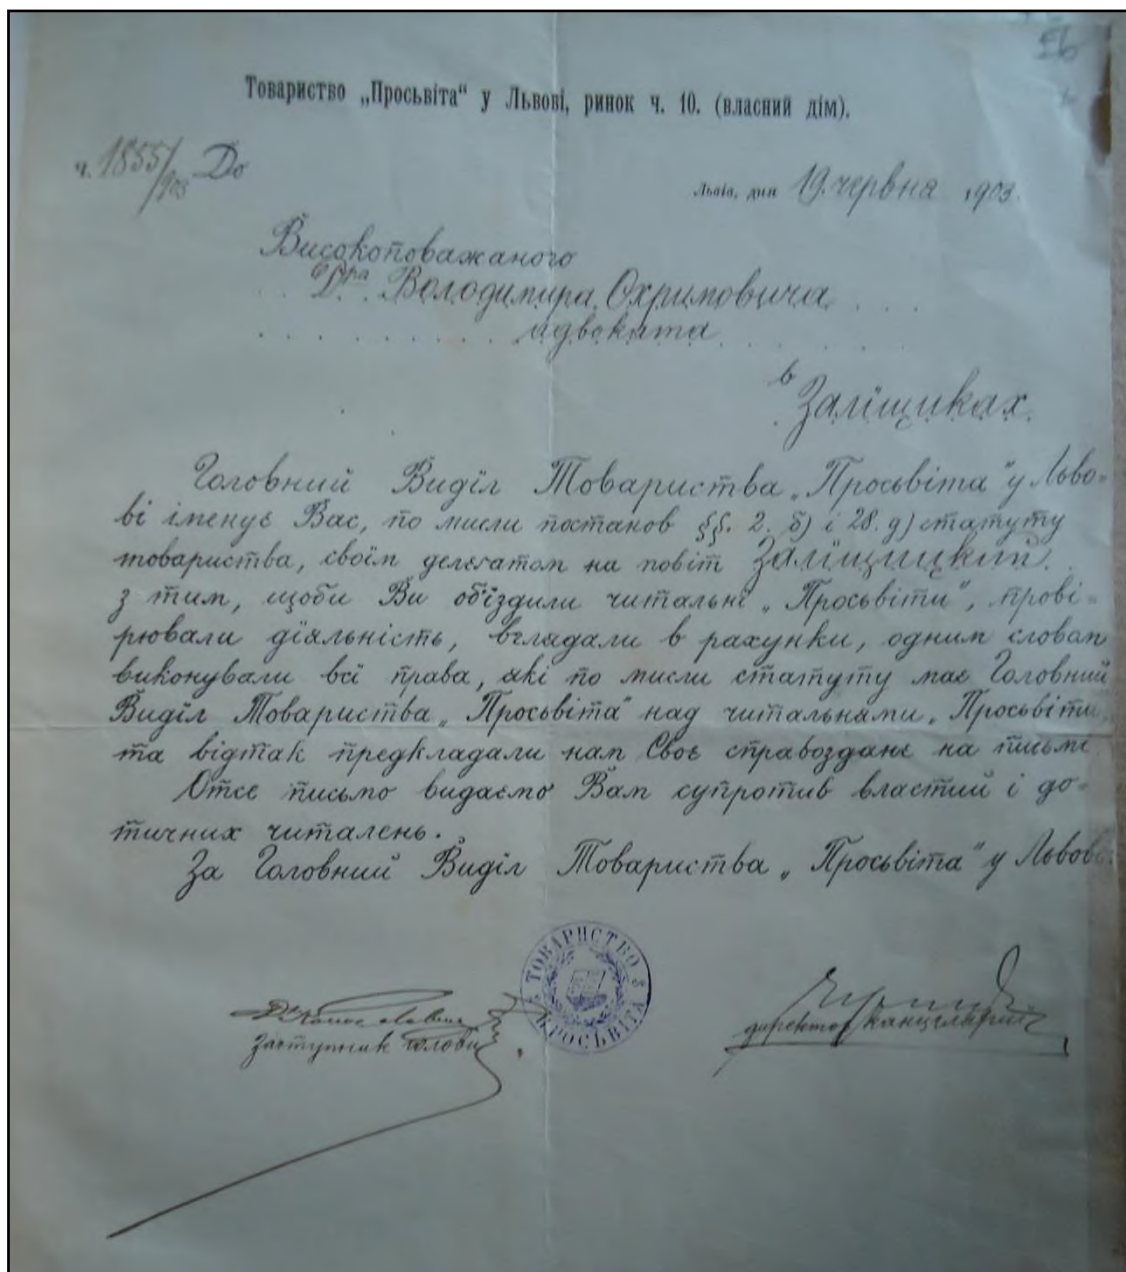 Товариство „Просьвіта“ у Львові, ринок ч. 10. (власний дім).
ч. 1855/903 До
Львів, дня 19. червня 1903.
Високоповажаного
Дра Володимира Охримовича
адвоката
в
Заліщиках.
Головний Виділ Товариства „Просьвіта“ у Льво-
ві іменує Вас, по мисли постанов §§. 2. б) і 28. д) статуту
товариства, своїм делєґатом на повіт Заліщицкий
з тим, щоби Ви обїздили читальні „Просьвіти“, прові-
рювали діяльність, вглядали в рахунки, одним словом
виконували всі права, які по мисли статуту має Головний
Виділ Товариства „Просьвіта“ над читальнями „Просьвіти“
та відтак предкладали нам Своє справозданє на письмі.
Отсе письмо видаємо Вам супротив властий і до-
тичних читалень.
За Головний Виділ Товариства „Просьвіта“ у Львові.
ТОВАРИСТВО ПРОСЬВІТА
Др
заступник голови
директор канцелярії